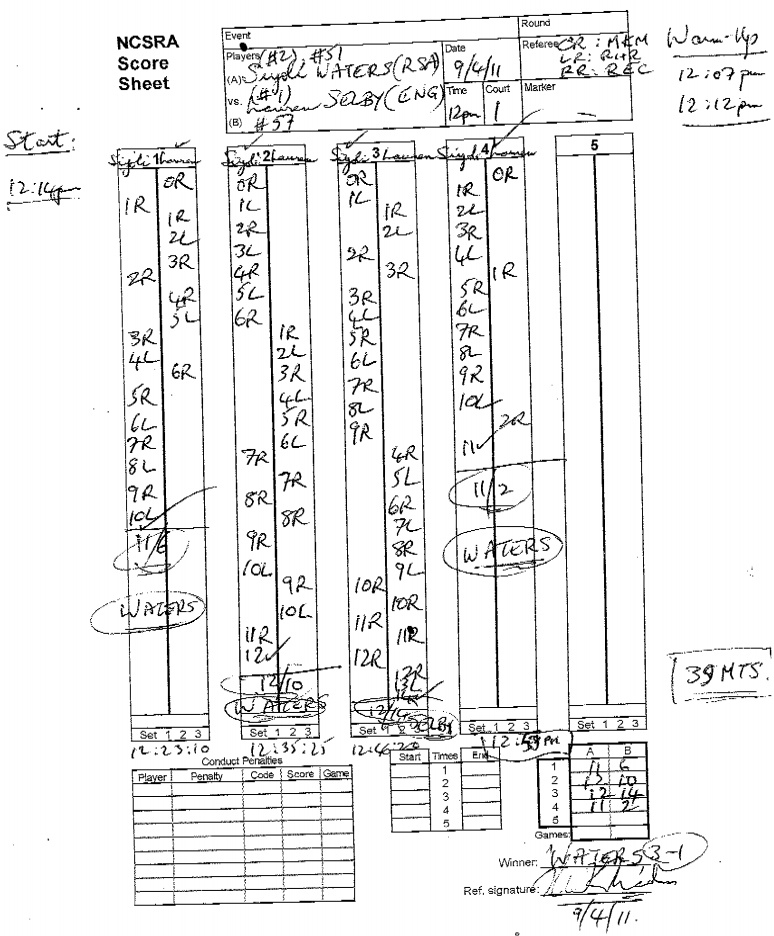 NCSRA
Score
Sheet
Event
Round
Players (#2), #51
(A) Siyoli WATERS (RSA)
vs. (#1)
Lauren SELBY (ENG)
(B) #57
Date
9/4/11
Time
12pm
Court
1
Referee CR : MKM
LR : RHR
RR : REC
Marker
Warm-Up
12:07pm
12:12pm
Start:
12:14pm
Siyoli 1 Lauren
0R
1R
1R
2L
3R
2R
4R
5L
3R
4L
6R
5R
6L
7R
8L
9R
10L
11/6
WATERS
Set 1 2 3
12:23:10
Siyoli 2 Lauren
0R
1L
2R
3L
4R
5L
6R
1R
2L
3R
4L
5R
6L
7R
7R
8R
8R
9R
10L
9R
10L
11R
12
12/10
WATERS
Set 1 2 3
12:35:25
Siyoli 3 Lauren
0R
1L
1R
2L
2R
3R
3R
4L
5R
6L
7R
8L
9R
4R
5L
6R
7L
8R
9L
10R
10R
11R
11R
12R
12R
13L
12/14
SELBY
Set 1 2 3
12:46:20
Siyoli 4 Lauren
0R
1R
2L
3R
4L
1R
5R
6L
7R
8L
9R
10L
2R
11
11/2
WATERS
Set 1 2 3
5
Set 1 2 3
39 MTS.
Conduct Penalties
Player Penalty Code Score Game
Start Times End
1
2
3
4
5
A B
1 11 6
2 12 10
3 12 14
4 11 2
5
Games:
Winner: WATERS 3-1
Ref. signature:
9/4/11.